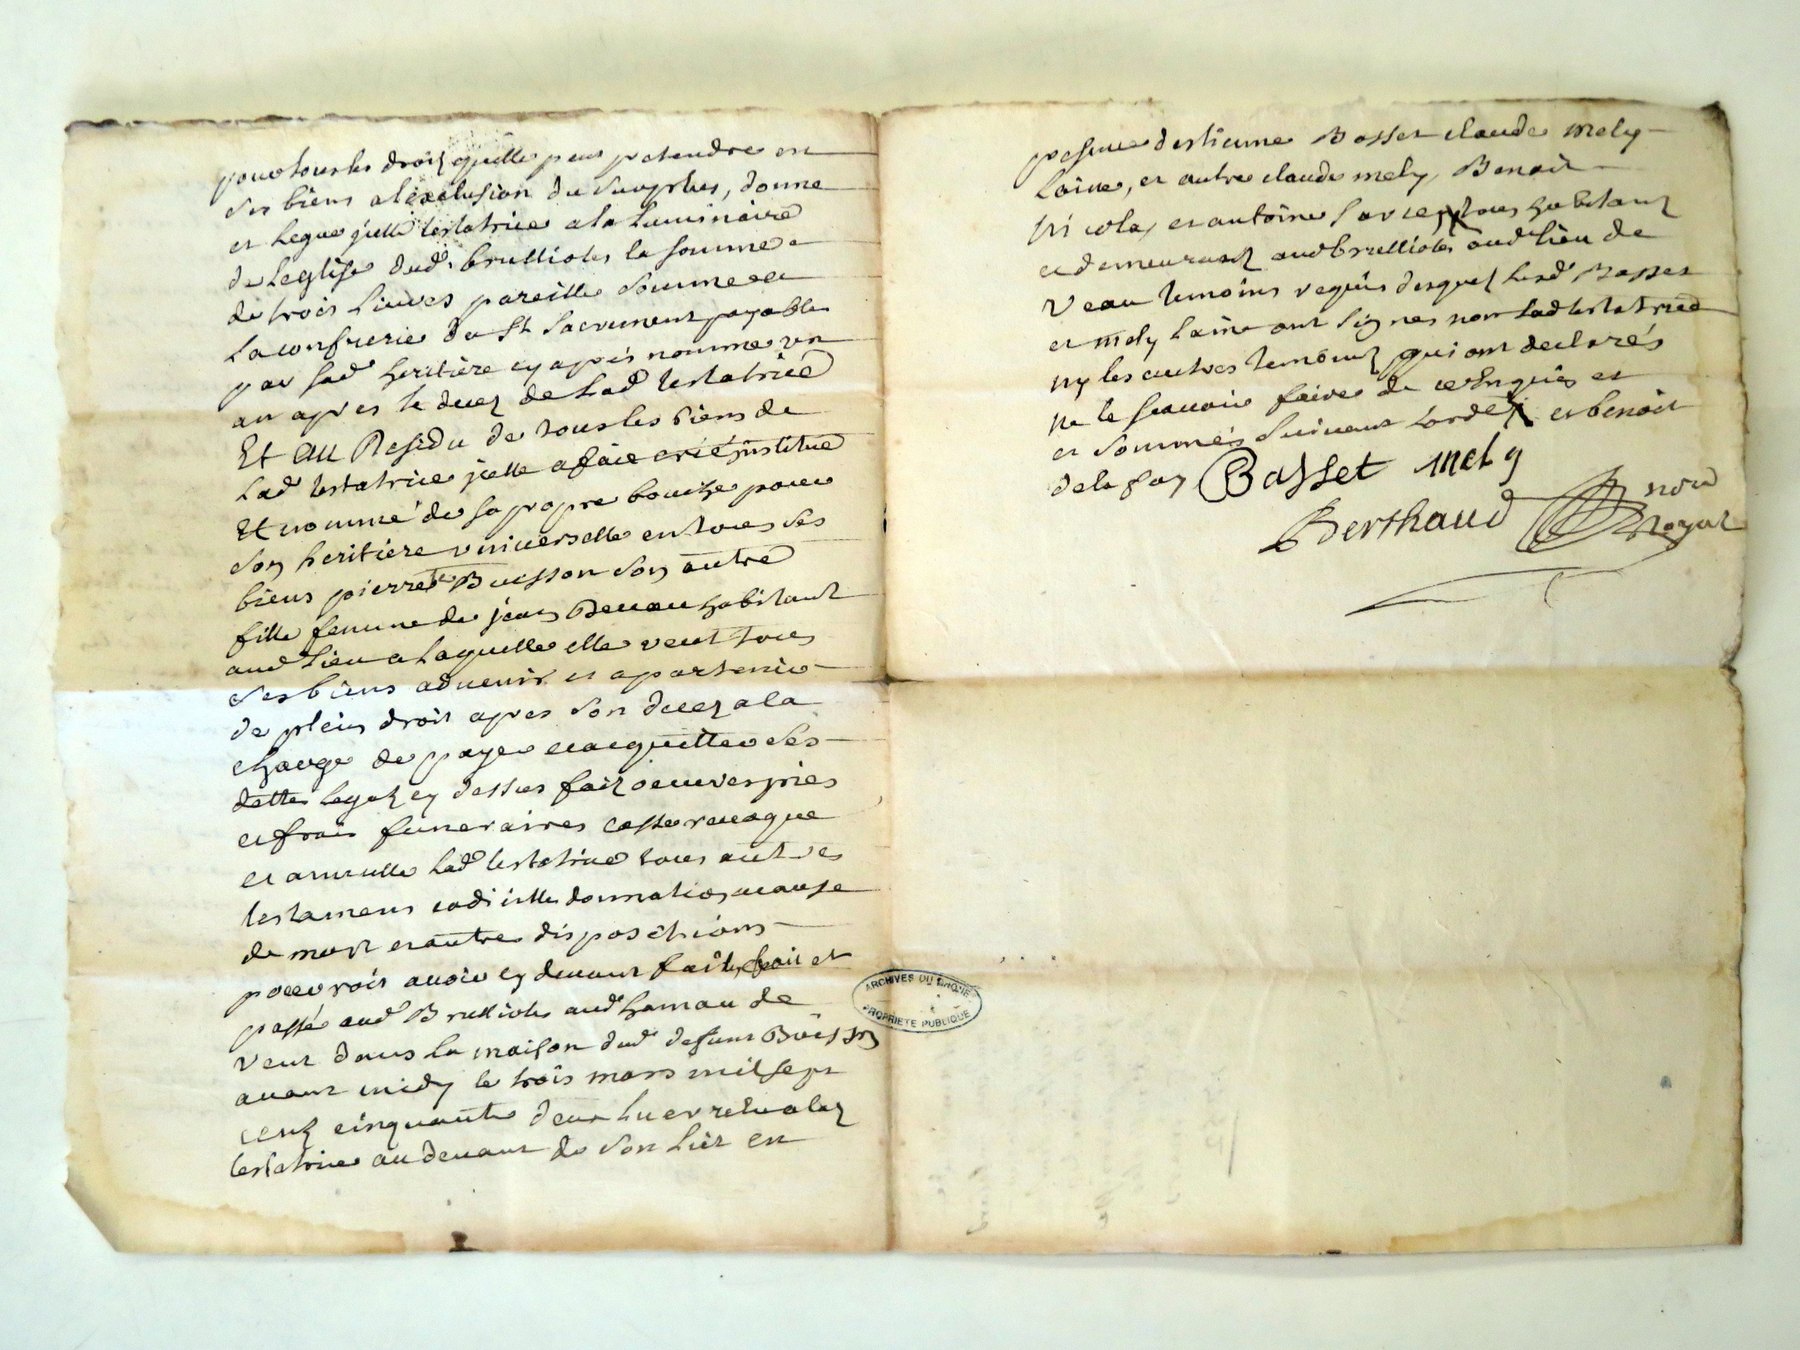 pour tous les droitz quelle peu pretendre en
ses biens a lexclusion du surplus, donne
et legue jcelle testatrice a la luminaire
de leglise dud. brullioles la somme
de trois livres pareille somme a
la confrerie du st sacrement payable
par sad. heritiere cy apres nomme un
an apres le decez de lad. testatrice
Et Au Residu de tous les biens de
lad. testatrice jcelle a faict créé institué
Et nommé de sa propre bouche pour
son heritiere universelle en tous ses
biens pierrette Buisson son autre
fille femme de jean habitant
aud. lieu a laquelle elle veut tous
ses biens advenir et apartenir
de plein droit apres son decez a la
charge de payer et acquitter ses
dettes legatz cy dessus faitz oeuvres pies
et frais funeraires casse revoque
et annulle lad. testatrice tous autres
testamens codicilles donnation a cause
de mort et autres dispositions
pouvroit avoir cy devant faites fait et
passé aud. Brullioles aud. hamau de
veut dans la maison dud. defunt Buisson
avant midy le trois mars mil sept
centz cinquante deux lu et relu a lad.
testatrice au devant de son lict en
presence destienne Basset claude mely
laine, et autre claude mely, Benoit
Nicolas, et antoine tous habitantz
et demeurantz aud. brullioles aud. lieu de
Veau temoins requis desquelz lesd. Basset
et mely laine ont signes non lad. testatrice
ny les autres temoins qui ont declarés
ne le scavoir faire de ce enquis et
et sommés suivant lord. et benoit
delafay Basset mely
Berthaud nore
Royal
ARCHIVES DU RHONE
PROPRIETE PUBLIQUE